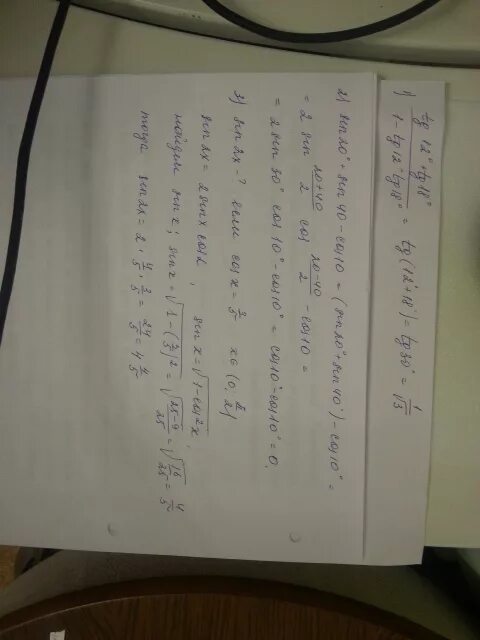 1) (tg 12° + tg 18°) / (1 - tg 12° tg 18°) = tg (12° + 18°) = tg 30° = 1/√3
2) sin 20° + sin 40 - cos 10 = (sin 20° + sin 40°) - cos 10° =
= 2 sin (20+40)/2 cos (20-40)/2 - cos 10 =
= 2 sin 30° cos 10° - cos 10° = cos 10° - cos 10° = 0.
3) sin 2x - ? если cos x = 3/5 x ∈ (0; π/2)
sin 2x = 2 sin x cos 2, sin x = √(1 - cos²x),
найдем sin x; sin x = √(1 - (3/5)²) = √((25-9)/25) = √(16/25) = 4/5
тогда sin 2x = 2 · 4/5 · 3/5 = 24/5 = 4 4/5